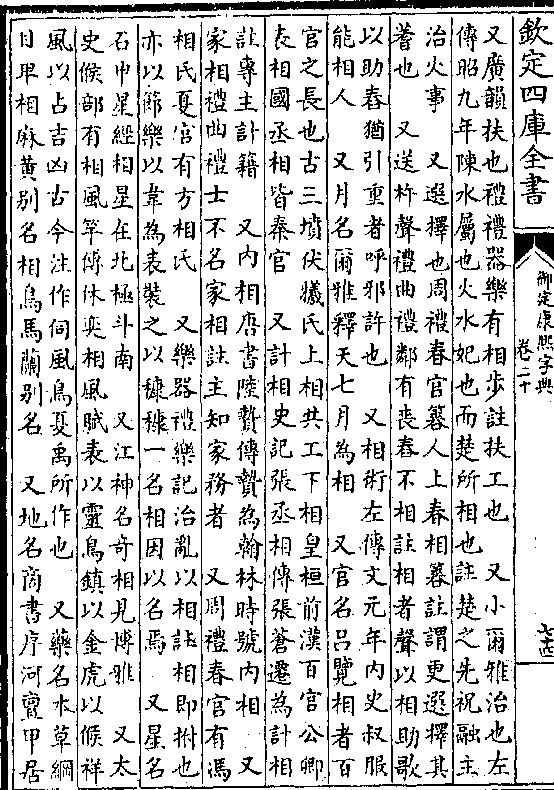 欽定四庫全書
御定康熙字典
卷二十
七十四
又廣韻扶也禮禮器樂有相步註扶工也　又小爾雅治也左
傳昭九年陳水屬也火水妃也而楚所相也註楚之先祝融主
治火事　又選擇也周禮春官簭人上春相簭註謂更選擇其
蓍也　又送杵聲禮曲禮鄰有喪舂不相註相者聲以相助歌
以助舂猶引重者呼邪許也　又相術左傳文元年内史叔服
能相人　又月名爾雅釋天七月為相　又官名呂覽相者百
官之長也古三墳伏犧氏上相共工下相皇桓前漢百官公卿
表相國丞相皆秦官　又計相史記張丞相傳張蒼遷為計相
註專主計籍　又内相唐書陸贄傳贄為翰林時號内相　又
家相禮曲禮士不名家相註主知家務者　又周禮春官有馮
相氏夏官有方相氏　又樂器禮樂記治亂以相註相即拊也
亦以節樂以韋為表裝之以穅穅一名相因以名焉　又星名
石申星經相星在北極斗南　又江神名奇相見博雅　又太
史候部有相風竿傅休奕相風賦表以靈鳥鎮以金虎以候祥
風以占吉凶古今注作伺風鳥夏禹所作也　又藥名本草綱
目卑相麻黄别名相烏馬蘭别名　又地名商書序河亶甲居